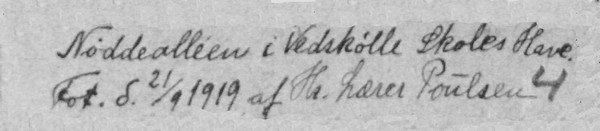 Nøddealléen i Vedskølle Skoles Have.
Fot. d. 21/9 1919 af Hr. Lærer Poulsen 4